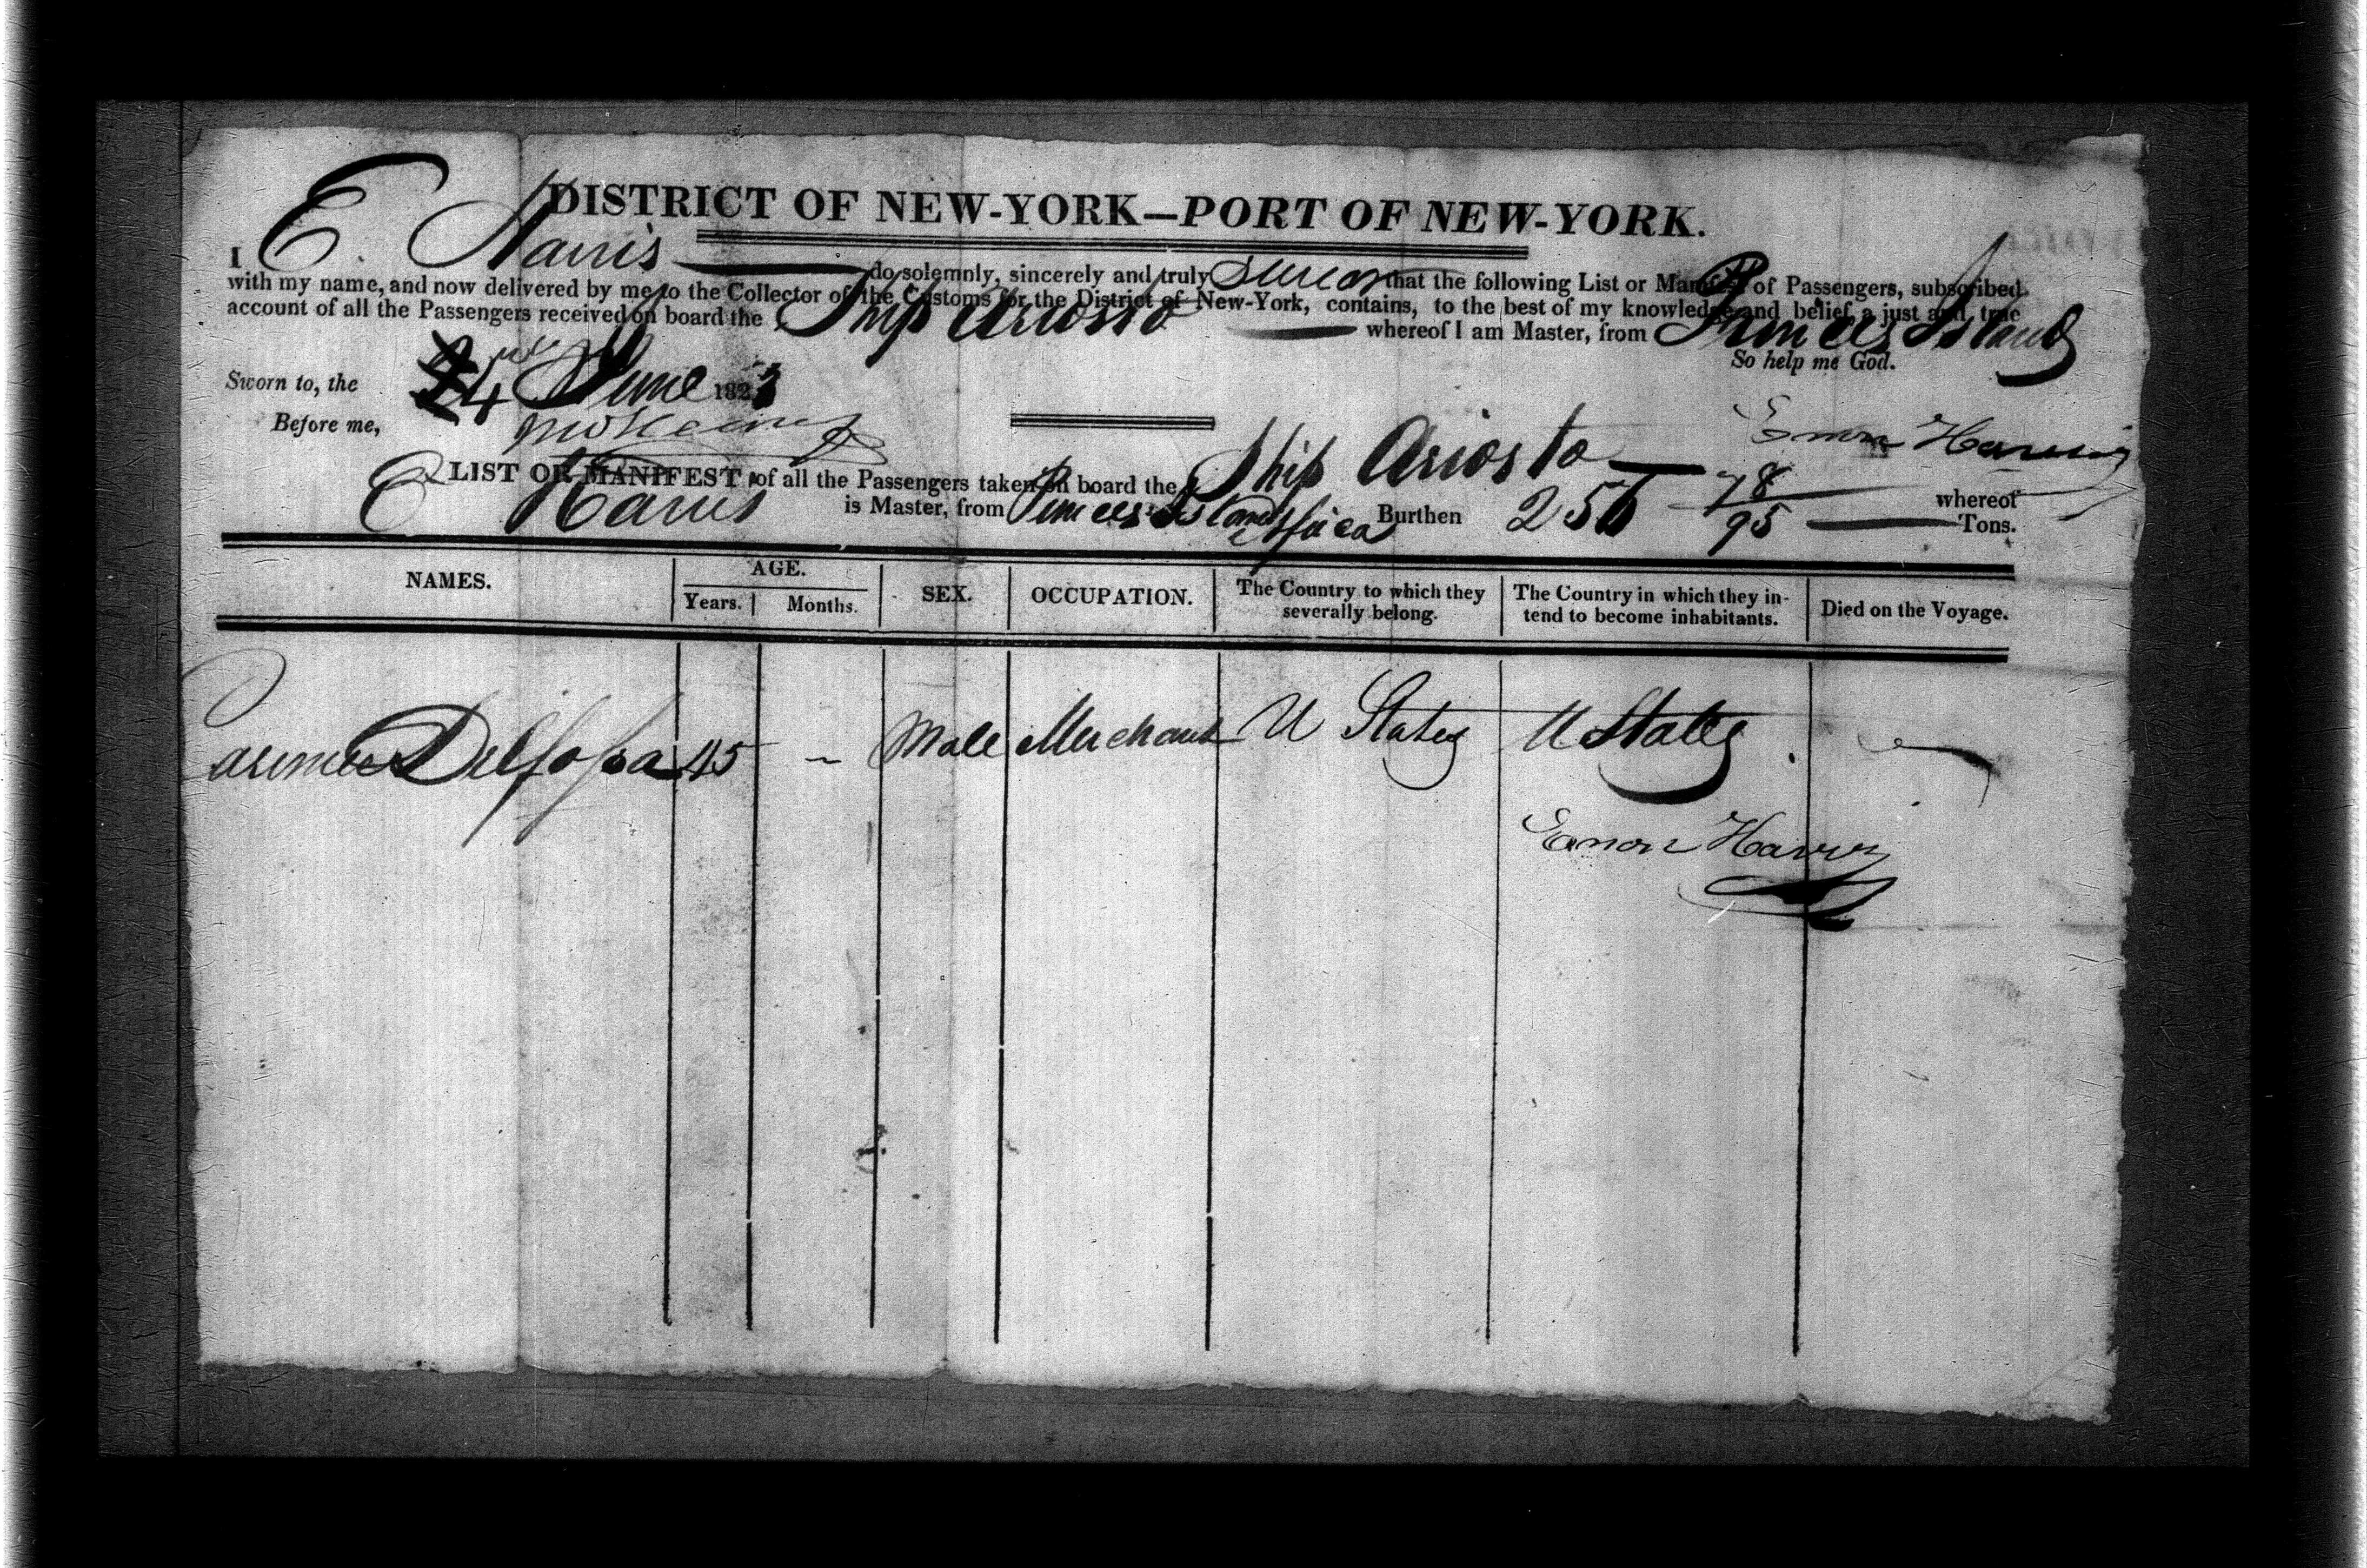 DISTRICT OF NEW-YORK—PORT OF NEW-YORK.
I E. Harris do solemnly, sincerely and truly swear that the following List or Manifest of Passengers, subscribed
with my name, and now delivered by me to the Collector of the Customs for the District of New-York, contains, to the best of my knowledge and belief, a just and true
account of all the Passengers received on board the Ship Ariosto whereof I am Master, from Princes Island
So help me God.
Sworn to, the 4 June 1823
Before me,
Harris
LIST OR MANIFEST of all the Passengers taken on board the Ship Ariosto whereof
E Harris is Master, from Princes Island Africa Burthen 256 78/95 Tons.
NAMES. AGE. SEX. OCCUPATION. The Country to which they severally belong. The Country in which they intend to become inhabitants. Died on the Voyage.
Years. Months.
45 – Male Merchant U States U States
Harris